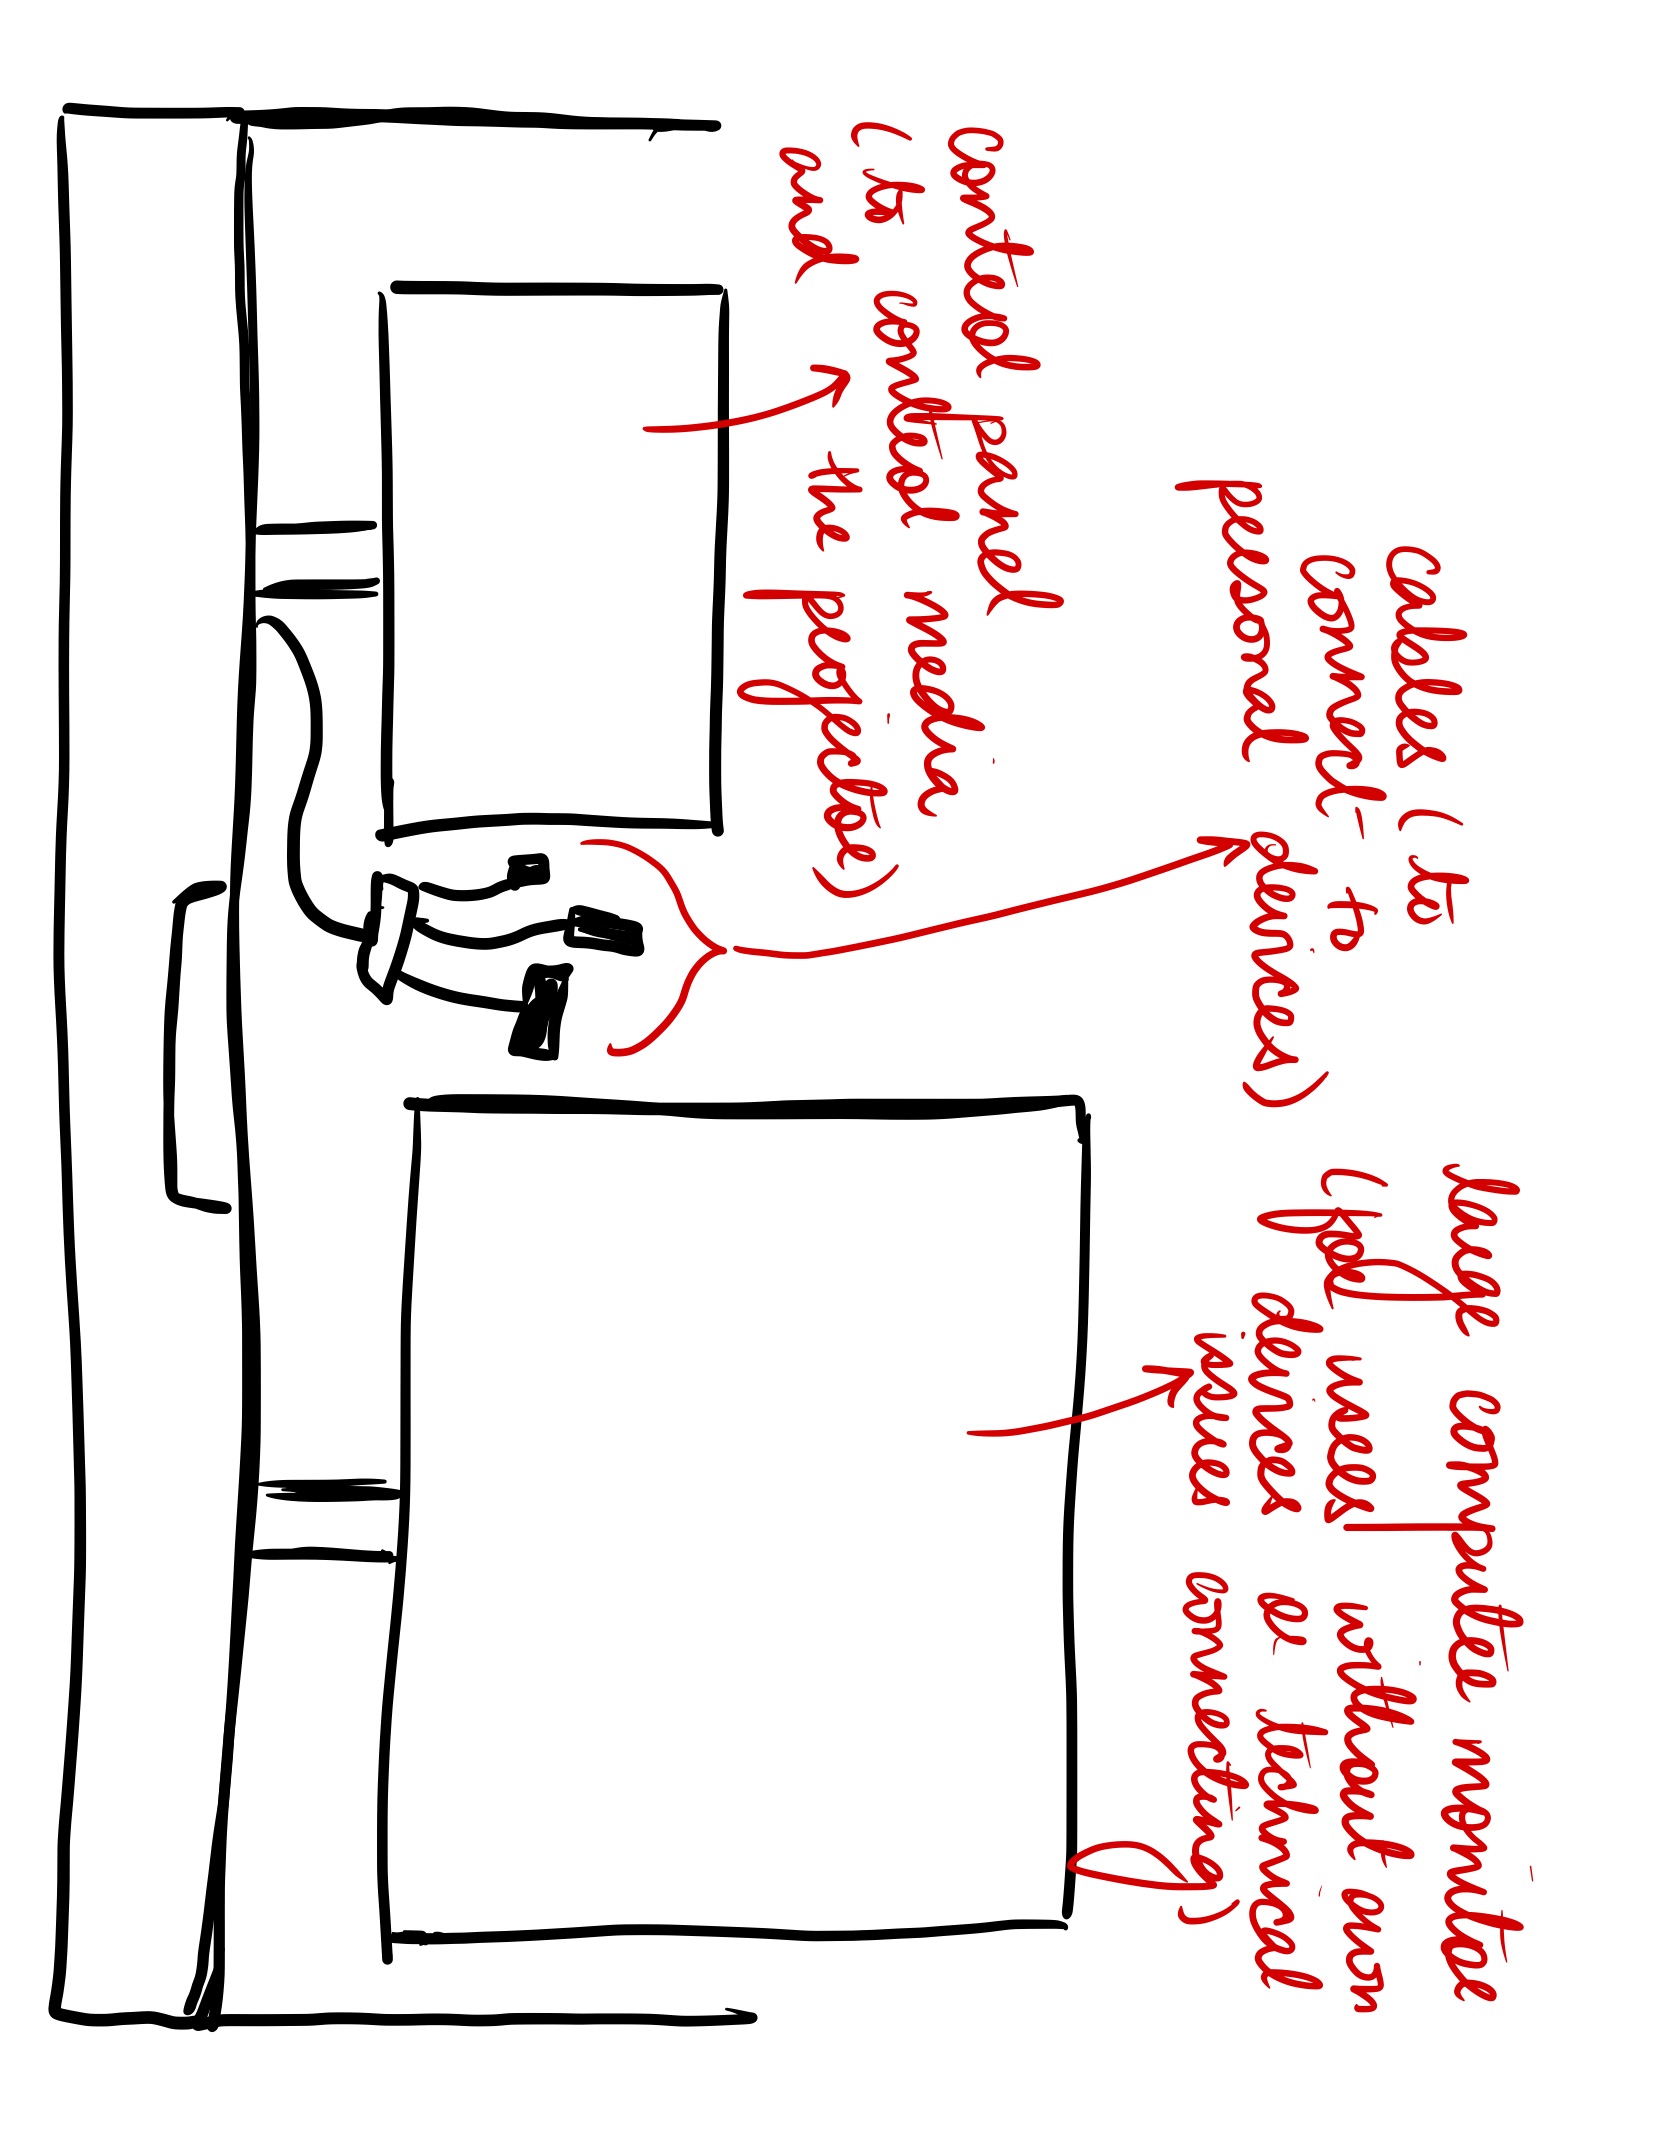 control panel
(to control media
and the projector)
cables (to
connect to
personal devices)
large computer monitor
(for users without own
devices or technical
issues connecting)